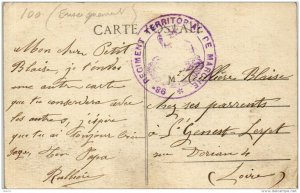 100 (Enseignement
CARTE POSTALE
98e REGIMENT TERRITORIAL DE MARCHE
Mon cher Petit
Blaise je t'envoi
une autre carte
que tu conservera avec
les autres, j'espère
que tu ai toujours bien
sage. Ton Papa
Rullière
M Rullière Blaise
chez ses parrents
à St Genest Lerpt
rue Dorian 4
(Loire)